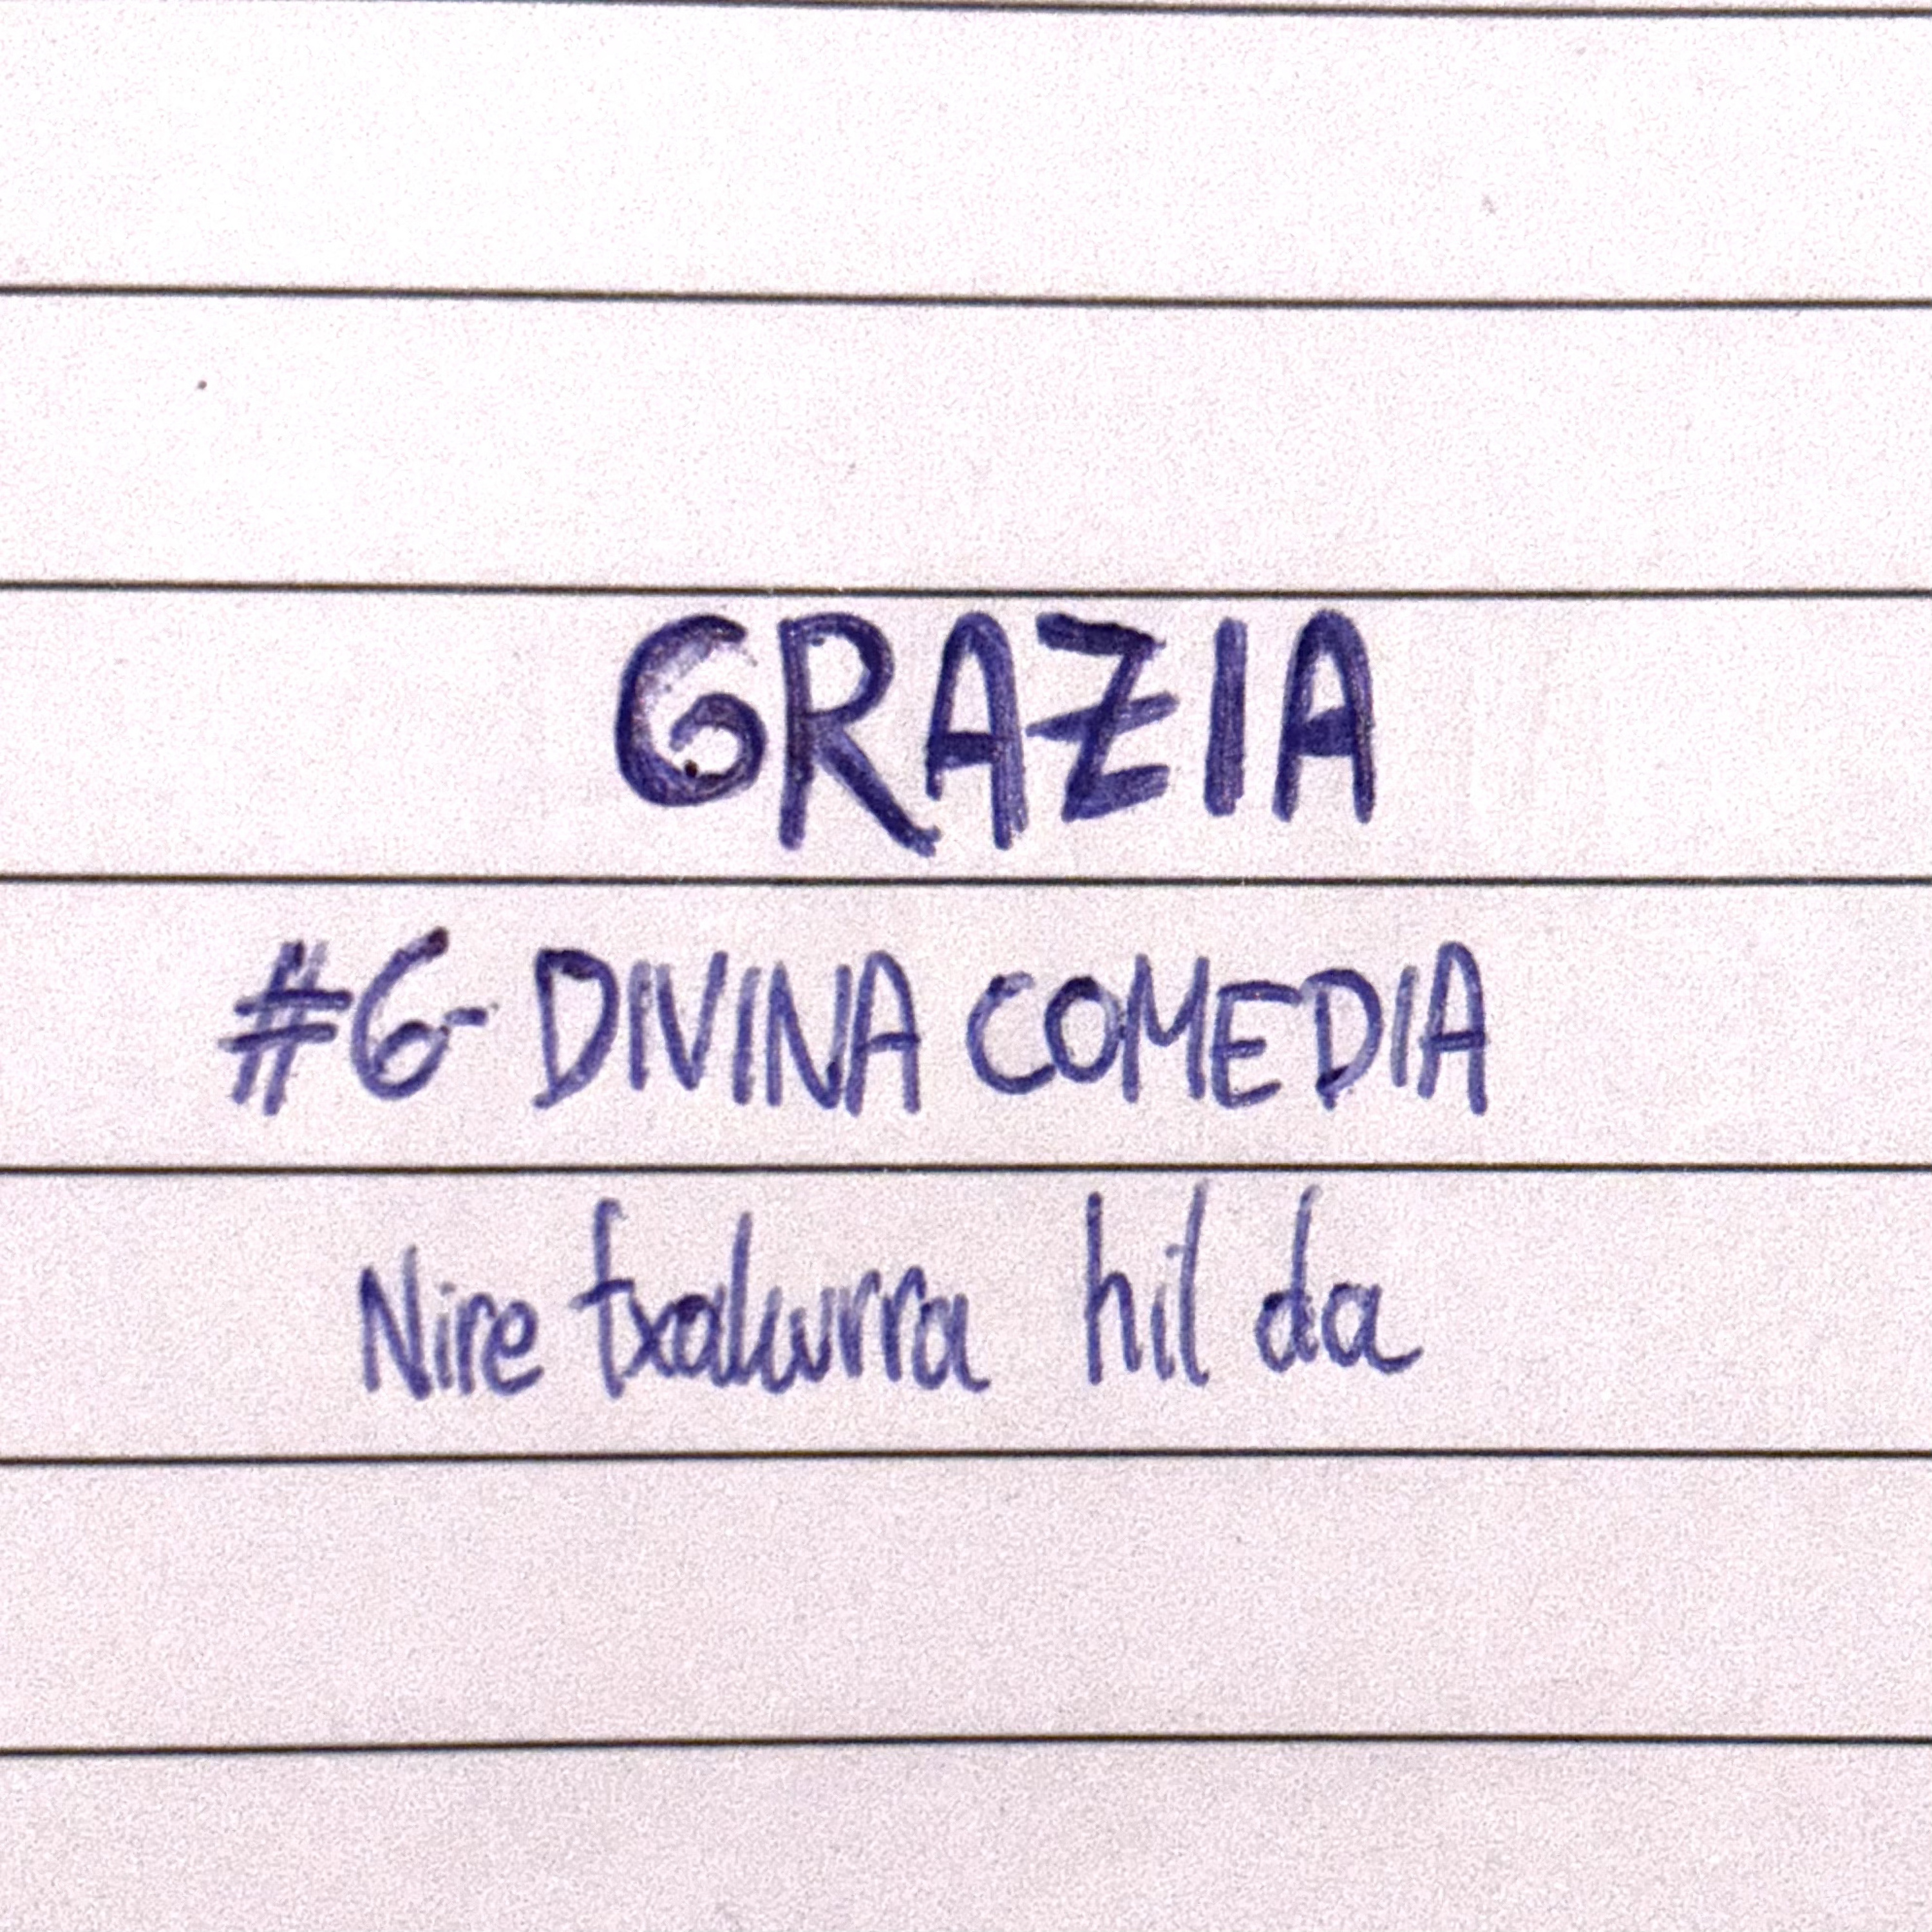 GRAZIA
#6- DIVINA COMEDIA
Nire txakurra hil da